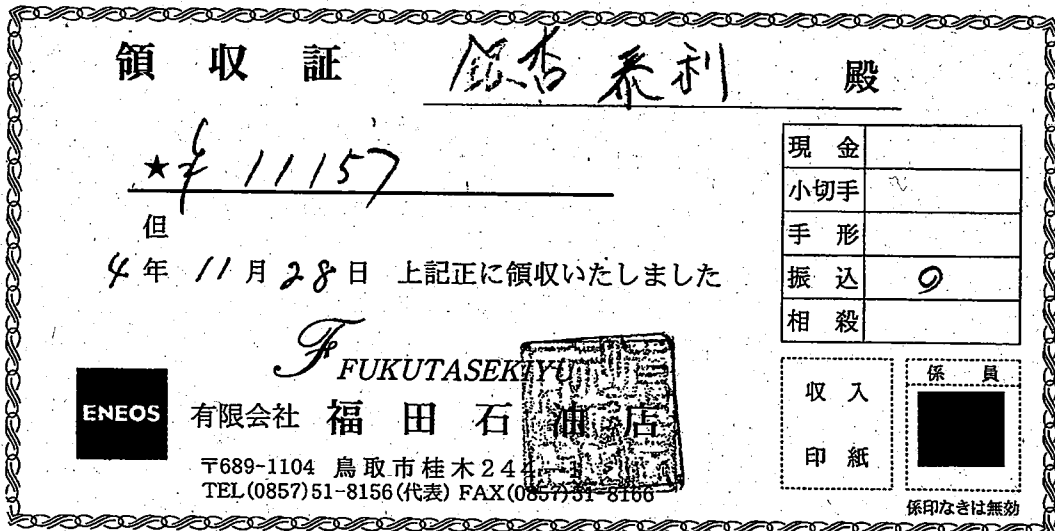 領収証 銀杏 泰利 殿
★¥11157
但
4年11月28日 上記正に領収いたしました
現金
小切手
手形
振込 〇
相殺
FUKUTASEKIYU
ENEOS 有限会社 福田石油店
〒689-1104 鳥取市桂木244-1
TEL(0857)51-8156(代表) FAX(0857)51-8166
収入
印紙
係員
係印なきは無効